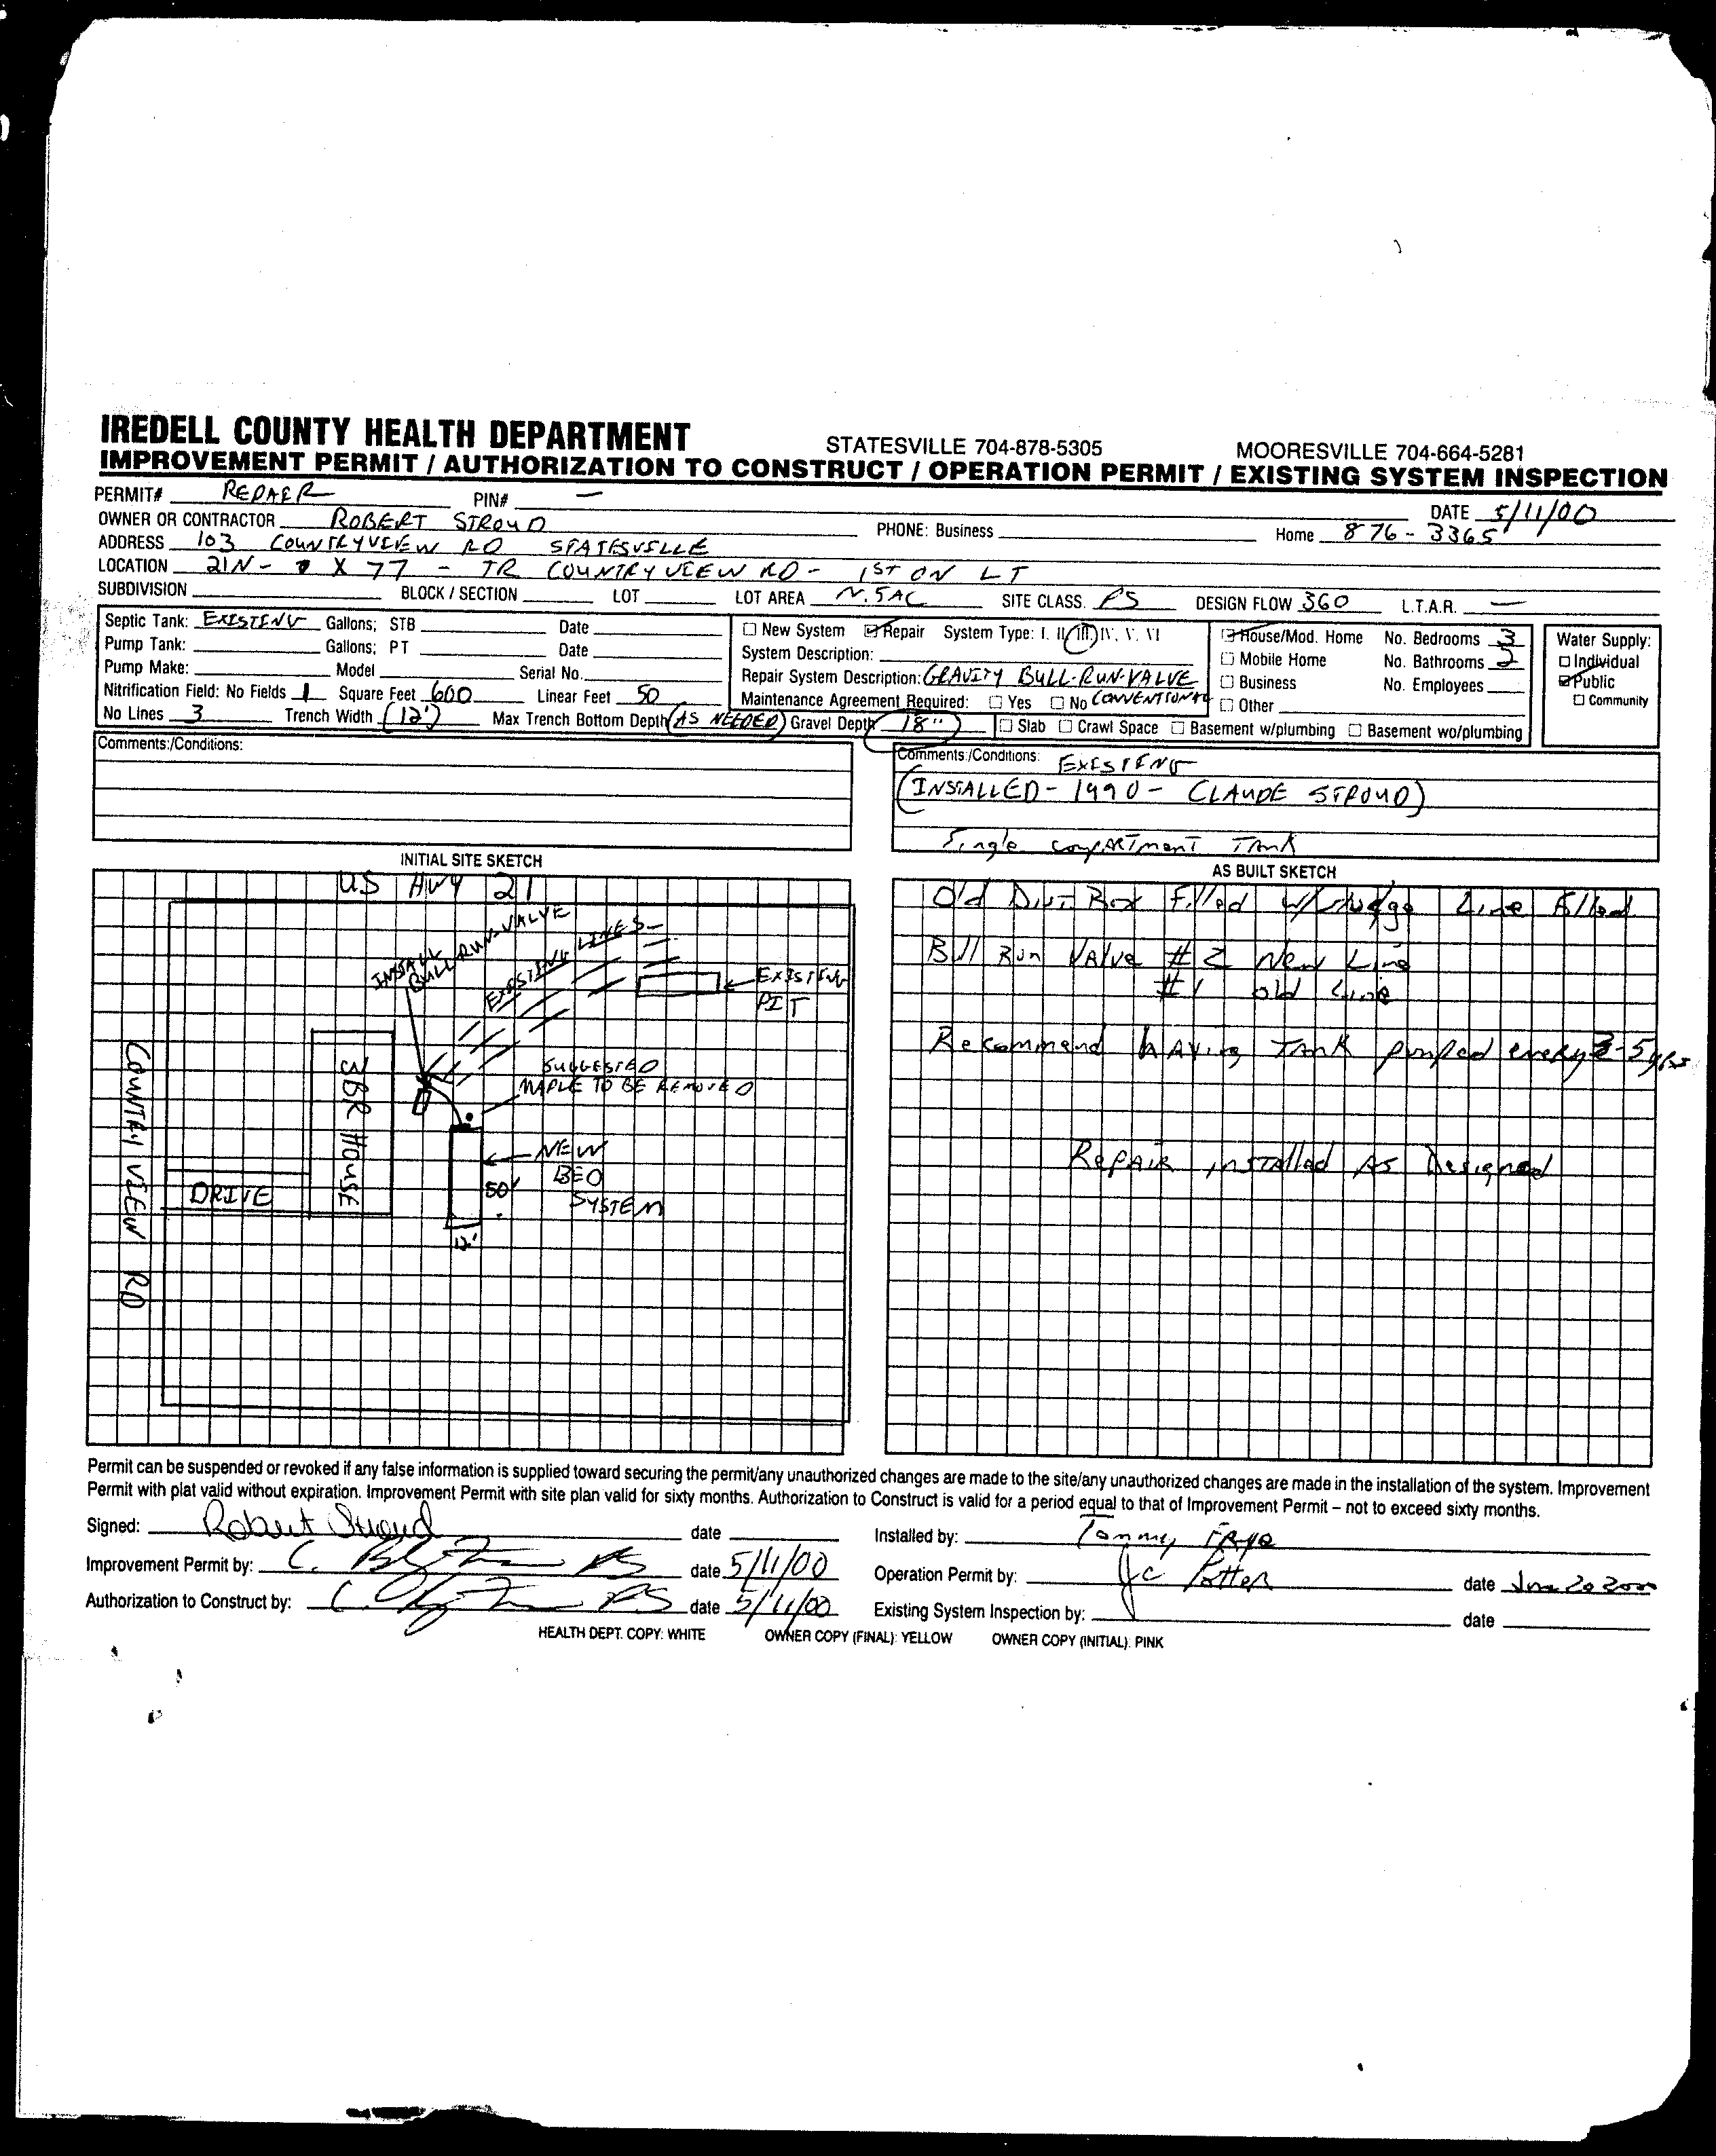 IREDELL COUNTY HEALTH DEPARTMENT STATESVILLE 704-878-5305 MOORESVILLE 704-664-5281
IMPROVEMENT PERMIT / AUTHORIZATION TO CONSTRUCT / OPERATION PERMIT / EXISTING SYSTEM INSPECTION
PERMIT# REPAIR PIN# — DATE 5/11/00
OWNER OR CONTRACTOR ROBERT STROUD PHONE: Business Home 876-3365
ADDRESS 103 COUNTRYVIEW RD STATESVILLE
LOCATION 21N- X 77 - TR COUNTRYVIEW RD - 1ST ON LT
SUBDIVISION BLOCK / SECTION LOT LOT AREA ~.5AC SITE CLASS. PS DESIGN FLOW 360 L.T.A.R. —
Septic Tank: EXISTING Gallons; STB Date
Pump Tank: Gallons; PT Date
Pump Make: Model Serial No.
Nitrification Field: No Fields 1 Square Feet 600 Linear Feet 50
No Lines 3 Trench Width (12') Max Trench Bottom Depth (AS NEEDED) Gravel Depth 18"
☐ New System ☑ Repair System Type: I. II. III. IV. V. VI
System Description:
Repair System Description: GRAVITY BULL-RUN-VALVE
Maintenance Agreement Required: ☐ Yes ☐ No CONVENTIONAL
☐ Slab ☐ Crawl Space ☐ Basement w/plumbing ☐ Basement wo/plumbing
☑ House/Mod. Home No. Bedrooms 3
☐ Mobile Home No. Bathrooms 2
☐ Business No. Employees
☐ Other
Water Supply:
☐ Individual
☑ Public
☐ Community
Comments:/Conditions:
Comments:/Conditions: EXISTING
(INSTALLED - 1990 - CLAUDE STROUD)
Single compartment Tank
INITIAL SITE SKETCH
US HWY 21
INSTALL
BULL-RUN-VALVE
EXISTING LINES
EXISTING
PIT
SUGGESTED
MAPLE TO BE REMOVED
COUNTRY VIEW RD
3BR HOUSE
DRIVE
NEW
BED
SYSTEM
50'
12'
AS BUILT SKETCH
Old Dist Box Filled w/sludge Line Filled
Bull Run Valve #2 New Line
#1 old Line
Recommend having Tank pumped every 3-5yrs
Repair installed As Designed
Permit can be suspended or revoked if any false information is supplied toward securing the permit/any unauthorized changes are made to the site/any unauthorized changes are made in the installation of the system. Improvement
Permit with plat valid without expiration. Improvement Permit with site plan valid for sixty months. Authorization to Construct is valid for a period equal to that of Improvement Permit – not to exceed sixty months.
Signed: Robert Stroud date
Improvement Permit by: C. RS date 5/11/00
Authorization to Construct by: C. RS date 5/11/00
Installed by: Tommy Frye
Operation Permit by: JC Potter date June 20 2000
Existing System Inspection by: date
HEALTH DEPT. COPY: WHITE OWNER COPY (FINAL): YELLOW OWNER COPY (INITIAL): PINK